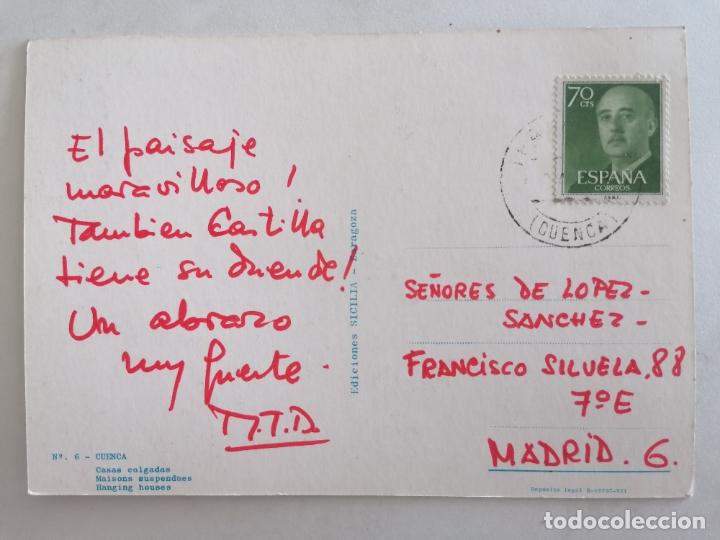 El paisaje
maravilloso!
Tambien Castilla
tiene su duende!
Un abrazo
muy fuerte.
Nº. 6 - CUENCA
Casas colgadas
Maisons suspendoes
Hanging houses
Ediciones SICILIA - Zaragoza
70
CTS
ESPAÑA
CORREOS
(CUENCA)
SEÑORES DE LOPEZ-
SANCHEZ-
FRANCISCO SILUELA, 88
7º E
MADRID. 6.
Deposito legal
todocoleccion.net